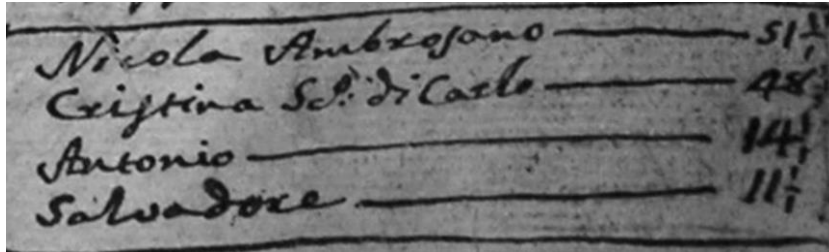 Nicola Ambrosano — 51
Cristina Sd.ª di Carlo — 48
Antonio — 14
Salvadore — 11